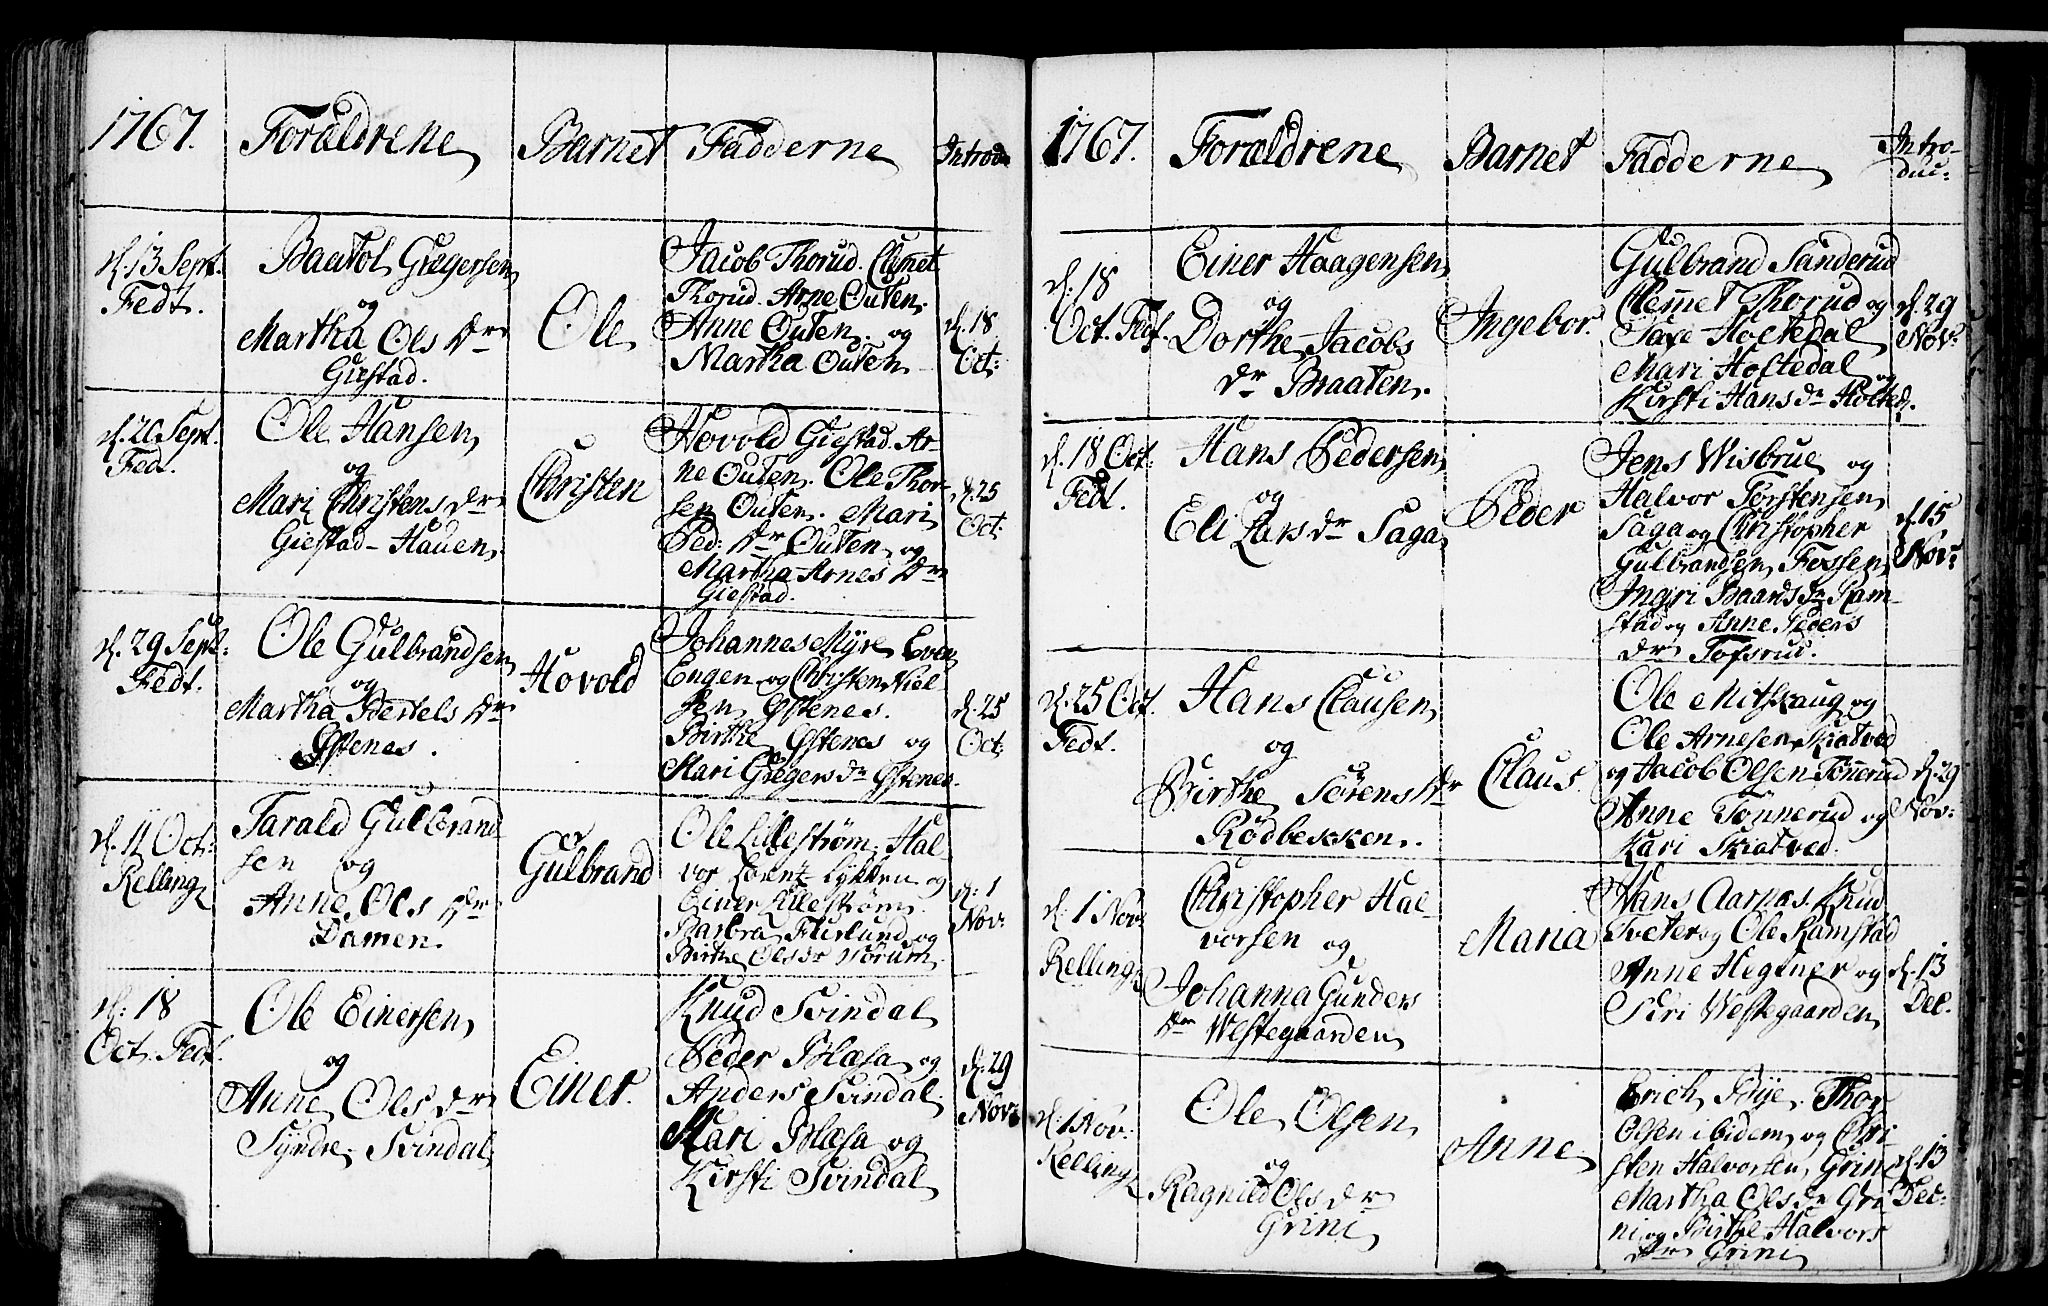 1767.
Forældrene
Barnet
Fadderne
Introd:
d. 13 Sept.
Fedt.
Baatol Gregersen
og
Martha Ols Dr
Giestad.
Ole
Jacob Thorud. Clemet
Thorud. Arne Outen.
Anne Outen og
Martha Outen
d. 18
Oct:
d. 20 Sept.
Fedt.
Ole Hansen
og
Mari Christens dr
Giestad-Hauen
Christen
Hovold Giestad. Ar-
ne Outen. Ole Thor-
sen Outen. Mari
Ped: Dr Outen og
Martha Arnes Dr
Giestad.
d. 25
Oct:
d. 29 Sept:
Fedt.
Ole Gulbrandsen
og
Martha Bertels Dr
Østenes.
Hovold
Johannes Myre Even
Engen og Christen Niel-
sen Østenes.
Birthe Østenes og
Mari Gregers dr Østenes.
d. 25
Oct:
d. 11 Oct:
Kelling
Tarald Gulbrand
sen og
Anne Ols Dr
Damen.
Gulbrand
Ole Lillestrøm. Hal-
vor Lorentz Lykken og
Einer Lillestrøm.
Barbra Flislund og
Birthe Ols dr Norum
d: 1
Nov:
d: 18
Oct. Fedt.
Ole Einersen
og
Anne Ols dr
Syndre Svindal
Einer.
Knud Svindal
Peder Blæsa og
Anders Svindal
Kari Blæsa og
Kirsti Svindal
d. 29
Nov:
1767.
Forældrene
Barnet
Fadderne
Intro-
duc:
d. 18
Oct. Fedt.
Einer Haagensen
og
Dorthe Jacobs
dr Braaten.
Ingebor.
Gulbrand Sanderud
Clemmet Thorud og
Taxe Holtedal
Mari Holtedal og
Kirsti Hans dr Holted.
d. 29
Nov:
d. 18 Oct:
Fedt.
Hans Pedersen
og
Eli Lars dr Saga
Peder
Jens Wisbrue og
Halvor Torstensen
Saga og Christopher
Gulbrandsen Fossen
Ingri Baards dr Ram-
stad og Anne Peders
dr Tofsrud.
d. 15
Nov:
d. 25 Oct.
Fedt.
Hans Clausen
og
Birthe Sørens Dr
Rødbekken.
Claus
Ole Mitskaug og
Ole Arnesen Skiatved
og Jacob Olsen Tønnerud
Anne Tønnerud og
Kari Skiatved.
d. 29
Nov:
d. 1 Nov:
Kelling:
Christopher Hal-
vorsen og
Johanna Gunders
Dr Westegaarden
Maria
Hans Aarnas. Knud
Tveter og Ole Ramstad
Anne Hegsner og
Siri Westegaarden
d. 13
Dec.
d. 1 Nov:
Kelling
Ole Olsen
og
Ragnild Ols dr
Grini
Anne
Erich Bye. Thor
Olsen ibidem og Chri-
sten Halvorsen Grini
Martha Ols dr Gri
ni og Birthe Halvors
dr Grini
d. 13
Dec: